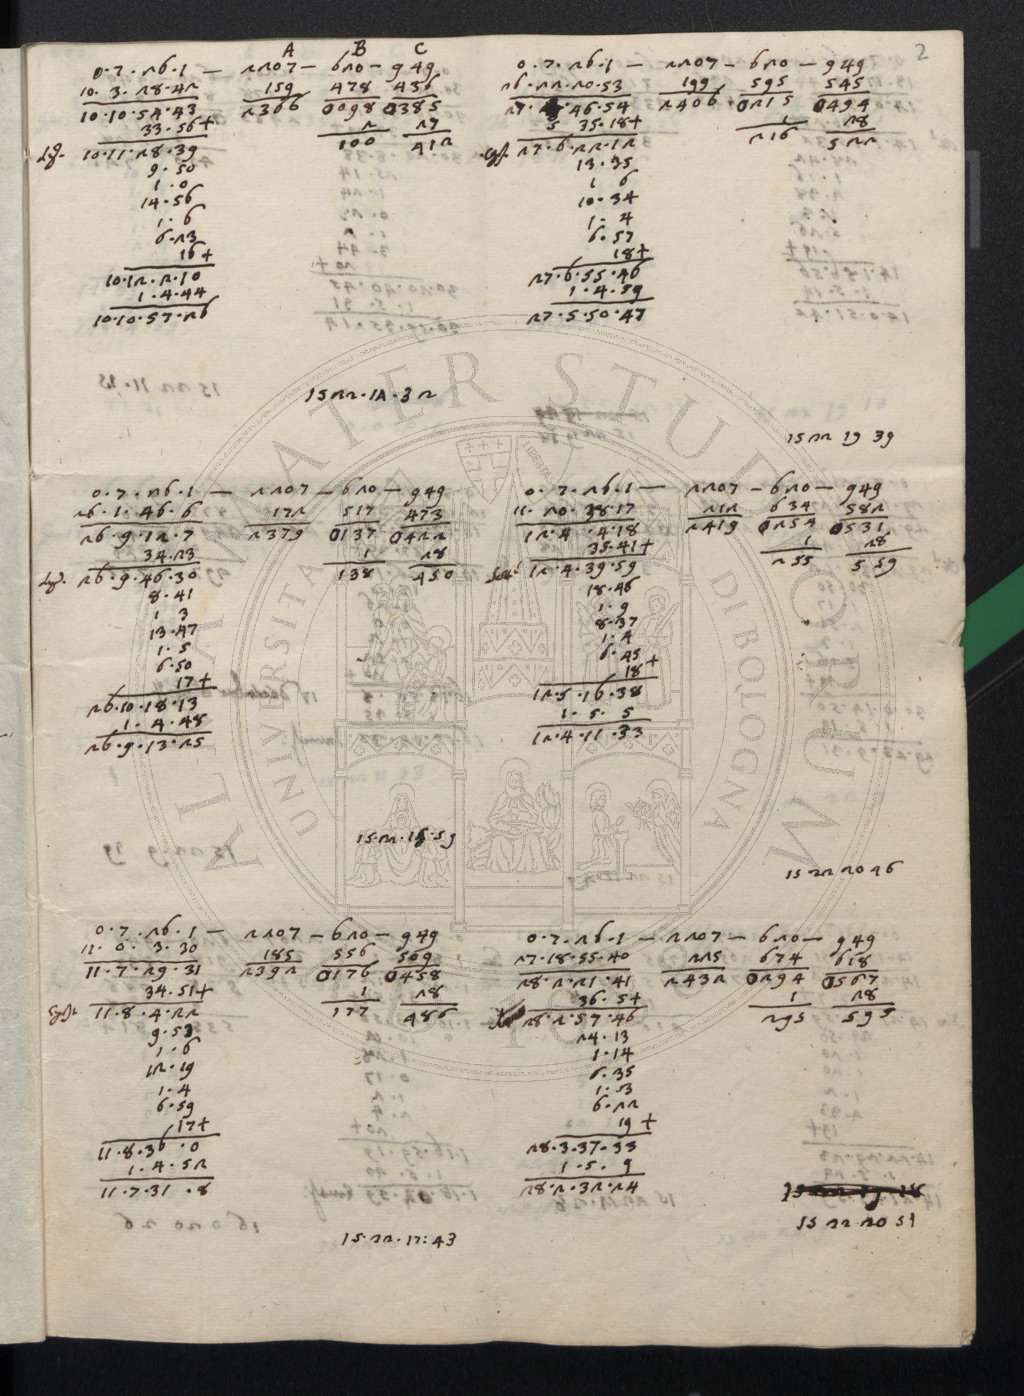 2
A B C
0·7·26·1 — 2207 — 620 — 949
10·3·28·42 159 478 436
10·10·54·43 2366 0098 0385
33·56+ 2 27
10·11·28·39 100 412
9·50
1·0
14·56
1·6
6·23
16+
10·12·2·10
1·4·44
10·10·57·26
1522·14·32
0·7·26·1 — 2207 — 620 — 949
26·22·20·53 199 595 545
27· 46·54 2406 0215 0494
5 35·18+ 1 28
27·6·22·12 216 522
13·35
1 6
10·34
1·4
6·57
18+
27·6·55·46
1·4·59
27·5·50·47
1522 19 39
0·7·26·1 — 2207 — 620 — 949
26·1·46·6 172 517 473
26·9·12·7 2379 0137 0422
34·23 1 28
26·9·46·30 138 450
8·41
1 3
13·47
1·5
6·50
17+
26·10·18·13
1·4·48
26·9·13·25
1522·15·59
0·7·26·1 — 2207 — 620 — 949
11·20·38·17 212 634 582
12·4·4·18 2419 0254 0531
35·41+ 1 28
12·4·39·59 255 559
18·46
1·9
8·37
1·4
6·45
18+
12·5·16·38
1·5·5
12·4·11·33
1522 20 46
0·7·26·1 — 2207 — 620 — 949
11·0·3·30 185 556 509
11·7·29·31 2392 0176 0458
34·51+ 1 28
11·8·4·22 177 486
9·53
1·6
12·19
1·4
6·59
17+
11·8·36·0
1·4·52
11·7·31·8
1522·17:43
0·7·26·1 — 2207 — 620 — 949
27·18·55·40 225 674 618
28·2·21·41 2432 0294 0567
36·5+ 1 28
28·2·57·46 295 595
24·13
1·14
6·35
1·53
6·22
19+
28·3·37·33
1·5·9
28·2·32·24
1522 19 18
1522 20 51
ALMA MATER STUDIORUM
UNIVERSITÀ DI BOLOGNA